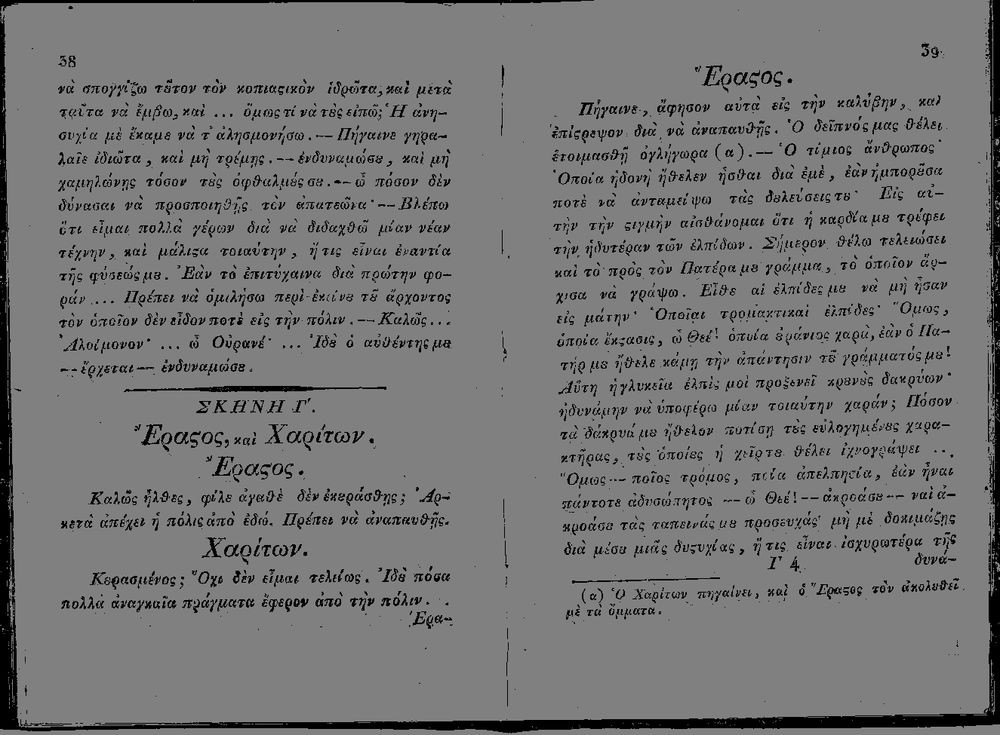 38
νὰ σπογγίζω τȣ͂τον τὸν κοπιαςικὸν ἱδρῶτα, καὶ μετὰ
ταῦτα νὰ ἔμβω, καὶ ... ὅμως τί νὰ τὲς εἰπῶ; Ἡ ἀνη-
συχία μὲ ἔκαμε νὰ τ' ἀλησμονήσω. — Πήγαινε γηρα-
λαῖε ἰδιῶτα, καὶ μὴ τρέμῃς. — ἐνδυναμώσȣ, καὶ μὴ
χαμηλώνῃς τόσον τȣ̀ς ὀφθαλμȣ́ς σȣ. — ὦ πόσον δὲν
δύνασαι νὰ προσποιηθῇς τὸν ἀπατεῶνα· — Βλέπω
ὅτι εἶμαι πολλὰ γέρων διὰ νὰ διδαχθῶ μίαν νέαν
τέχνην, καὶ μάλιςα τοιαύτην, ἥτις εἶναι ἐναντία
τῆς φύσεώς μȣ. Ἐὰν τὸ ἐπιτύχαινα διὰ πρώτην φο-
ράν ... Πρέπει νὰ ὁμιλήσω περὶ ἐκείνȣ τȣ͂ ἄρχοντος
τὸν ὁποῖον δὲν εἶδον ποτὲ εἰς τὴν πόλιν. — Καλῶς ...
Ἀλοίμονον· ... ὦ Οὐρανέ· ... Ἰδȣ̀ ὁ αὐθέντης μȣ
— ἔρχεται — ἐνδυναμώσȣ.
ΣΚΗΝΗ Γ'.
Ἔραςος, καὶ Χαρίτων.
Ἔραςος.
Καλῶς ἦλθες, φίλε ἀγαθὲ δὲν ἐκεράσθης; Ἀρ-
κετὰ ἀπέχει ἡ πόλις ἀπὸ ἐδώ. Πρέπει νὰ ἀναπαυθῇς.
Χαρίτων.
Κερασμένος; Ὄχι δὲν εἶμαι τελείως. Ἰδȣ̀ πόσα
πολλὰ ἀναγκαῖα πράγματα ἔφερον ἀπὸ τὴν πόλιν.
Ἔρα-
39
Ἔραςος.
Πήγαινε, ἄφησον αὐτὰ εἰς τὴν καλύβην, καὶ
ἐπίςρεψον διὰ νὰ ἀναπαυθῇς. Ὁ δεῖπνός μας θέλει
ἑτοιμασθῇ ὀγλήγωρα (α). — Ὁ τίμιος ἄνθρωπος·
Ὁποία ἡδονὴ ἤθελεν ἦσθαι διὰ ἐμὲ, ἐὰν ἠμπορȣ͂σα
ποτὲ νὰ ἀνταμείψω τὰς δȣλεύσεις τȣ· Εἰς αὐ-
τὴν τὴν ςιγμὴν αἰσθάνομαι ὅτι ἡ καρδία μȣ τρέφει
τὴν ἡδυτέραν τῶν ἐλπίδων. Σήμερον θέλω τελειώσει
καὶ τὸ πρὸς τὸν Πατέρα μȣ γράμμα, τὸ ὁποῖον ἄρ-
χισα νὰ γράψω. Εἶθε αἱ ἐλπίδες μȣ νὰ μὴ ἦσαν
εἰς μάτην· Ὁποῖαι τρομακτικαὶ ἐλπίδες· Ὅμως,
ὁποία ἔκςασις, ὦ Θεέ! ὁποία ȣ̓ράνιος χαρὰ, ἐὰν ὁ Πα-
τήρ μȣ ἤθελε κάμῃ τὴν ἀπάντησιν τȣ͂ γράμματός μȣ!
Αὕτη ἡ γλυκεῖα ἐλπὶς μοὶ προξενεῖ κρȣνȣ̀ς δακρύων·
ἠδυνάμην νὰ ὑποφέρω μίαν τοιαύτην χαράν; Πόσον
τὰ δάκρυά μȣ ἤθελον ποτίσῃ τȣ̀ς εὐλογημένȣς χαρα-
κτῆρας, τȣ̀ς ὁποίȣς ἡ χεῖρ τȣ θέλει ἰχνογράψει ...
Ὅμως — ποῖος τρόμος, ποία ἀπελπησία, ἐὰν ἦναι
πάντοτε ἀδυσώπητος — ὦ Θεέ! — ἀκροάσȣ — ναὶ ἀ-
κροάσȣ τὰς ταπεινάς μȣ προσευχάς· μὴ μὲ δοκιμάζῃς
διὰ μέσȣ μιᾶς δυςυχίας, ἥτις εἶναι ἰσχυρωτέρα τῆς
Γ 4 δυνά-
(α) Ὁ Χαρίτων πηγαίνει, καὶ ὁ Ἔραςος τὸν ἀκολȣθεῖ
μὲ τὰ ὄμματα.